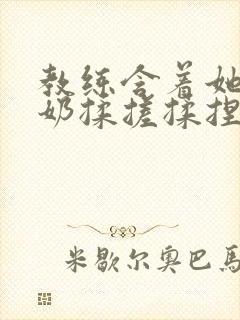 教练含着她
奶揉搓揉捏
米歇尔奥巴馬